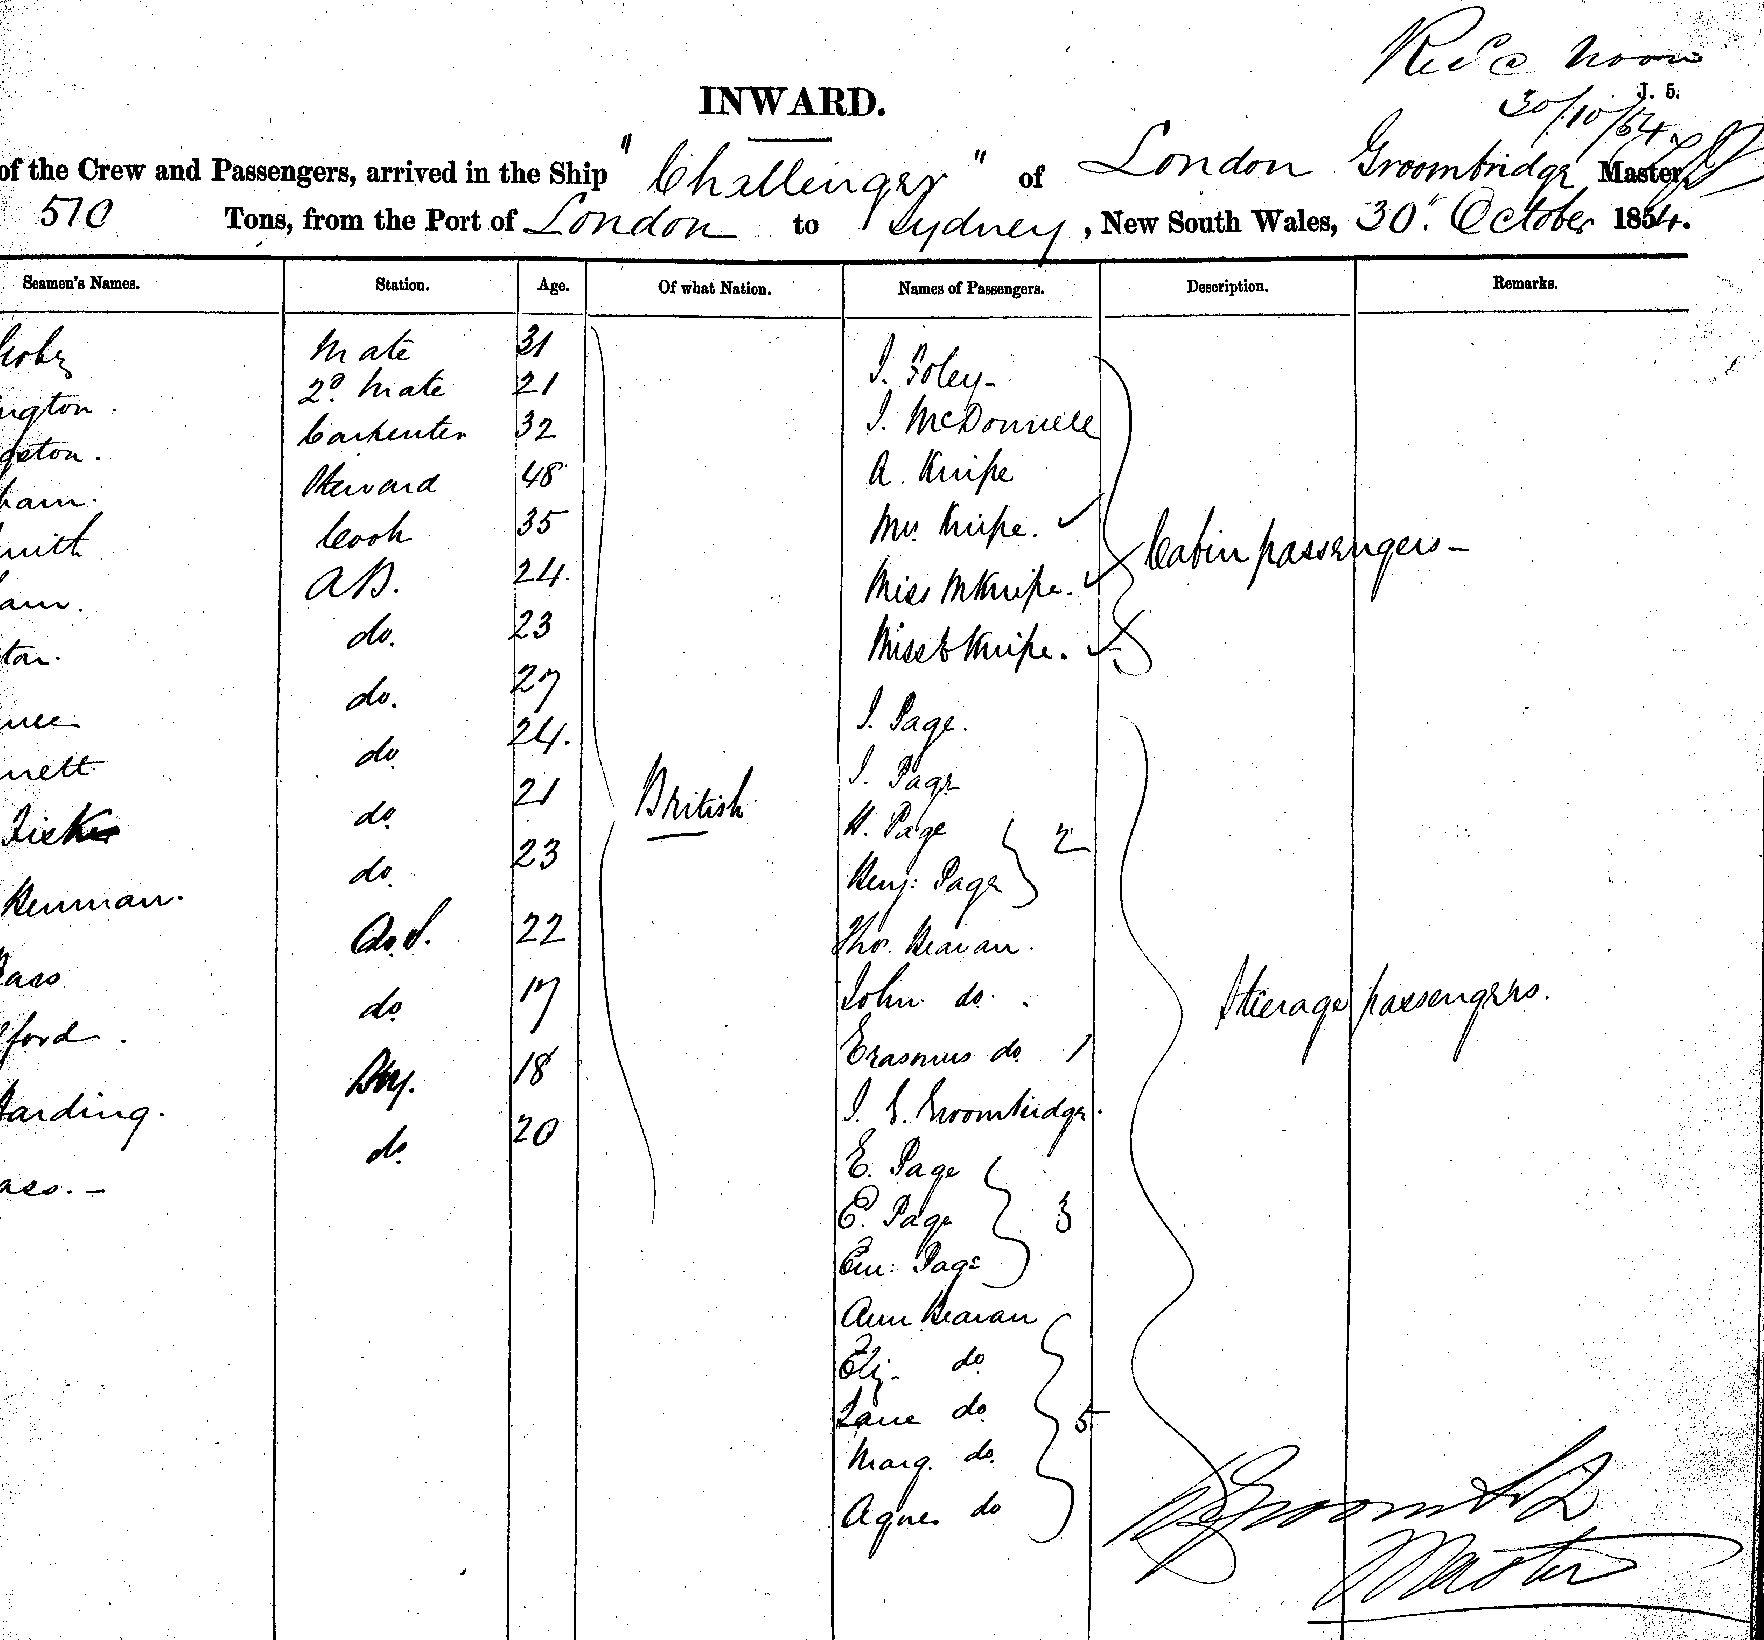 Rec'd Noon
J. 5.
30/10/54
INWARD.
of the Crew and Passengers, arrived in the Ship "Challenger" of London Groombridge Master,
510 Tons, from the Port of London to Sydney, New South Wales, 30. October 1854.
Seamen's Names. Station. Age. Of what Nation. Names of Passengers. Description. Remarks.
Mate 31
2d. Mate 21
ngton.
Carpenter 32
gston.
Steward 48
ham.
Cook 35
mith
A.B. 24.
am.
do. 23
ton.
do. 27
do 24.
nnett
do. 21
do. 23
Denman.
O.S. 22
ass
do 17
ford.
Boy. 18
Harding.
do. 20
ass. -
British
J. Foley -
J. McDonnell
A. Knipe
Mrs. Knipe.
Miss M Knipe.
Miss E Knipe.
Cabin passengers -
J. Page.
J. Page
H. Page
Henj: Page
2
Thos. Beavan.
John do.
Erasmus do 1
J. G. Groombridge.
E. Page
E. Page
Em: Page
3
Ann Beavan
Eliz. do
Jane do.
Marg. do.
Agnes do
5
Steerage passengers.
Groombridge
Master